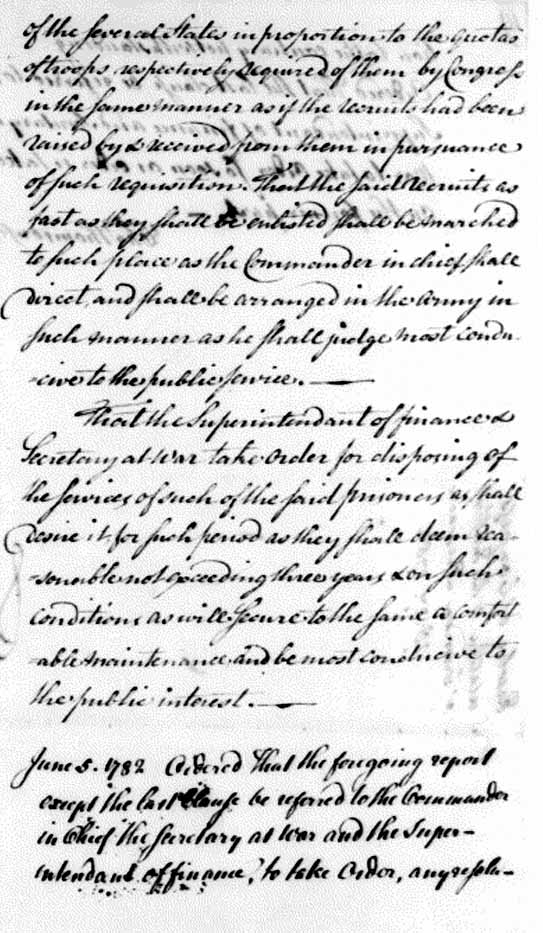 of the several States in proportion to the quotas
of troops respectively required of them by Congress
in the same manner as if the recruits had been
raised by & received from them in pursuance
of such requisition. That the said recruits as
fast as they shall be enlisted shall be marched
to such place as the Commander in chief shall
direct, and shall be arranged in the Army in
such manner as he shall judge most condu-
-cive to the public service. —
That the Superintendant of finance &
Secretary at war take order for disposing of
the services of such of the said prisoners as shall
desire it, for such period as they shall deem rea-
-sonable not exceeding three years & on such
conditions as will secure to the same a comfort
-able maintenance and be most conducive to
the public interest. —
June 5. 1782 Ordered That the foregoing report
except the last Clause be referred to the Commander
in Chief the Secretary at War and the Super-
intendant of finance, to take Order, any resolu-